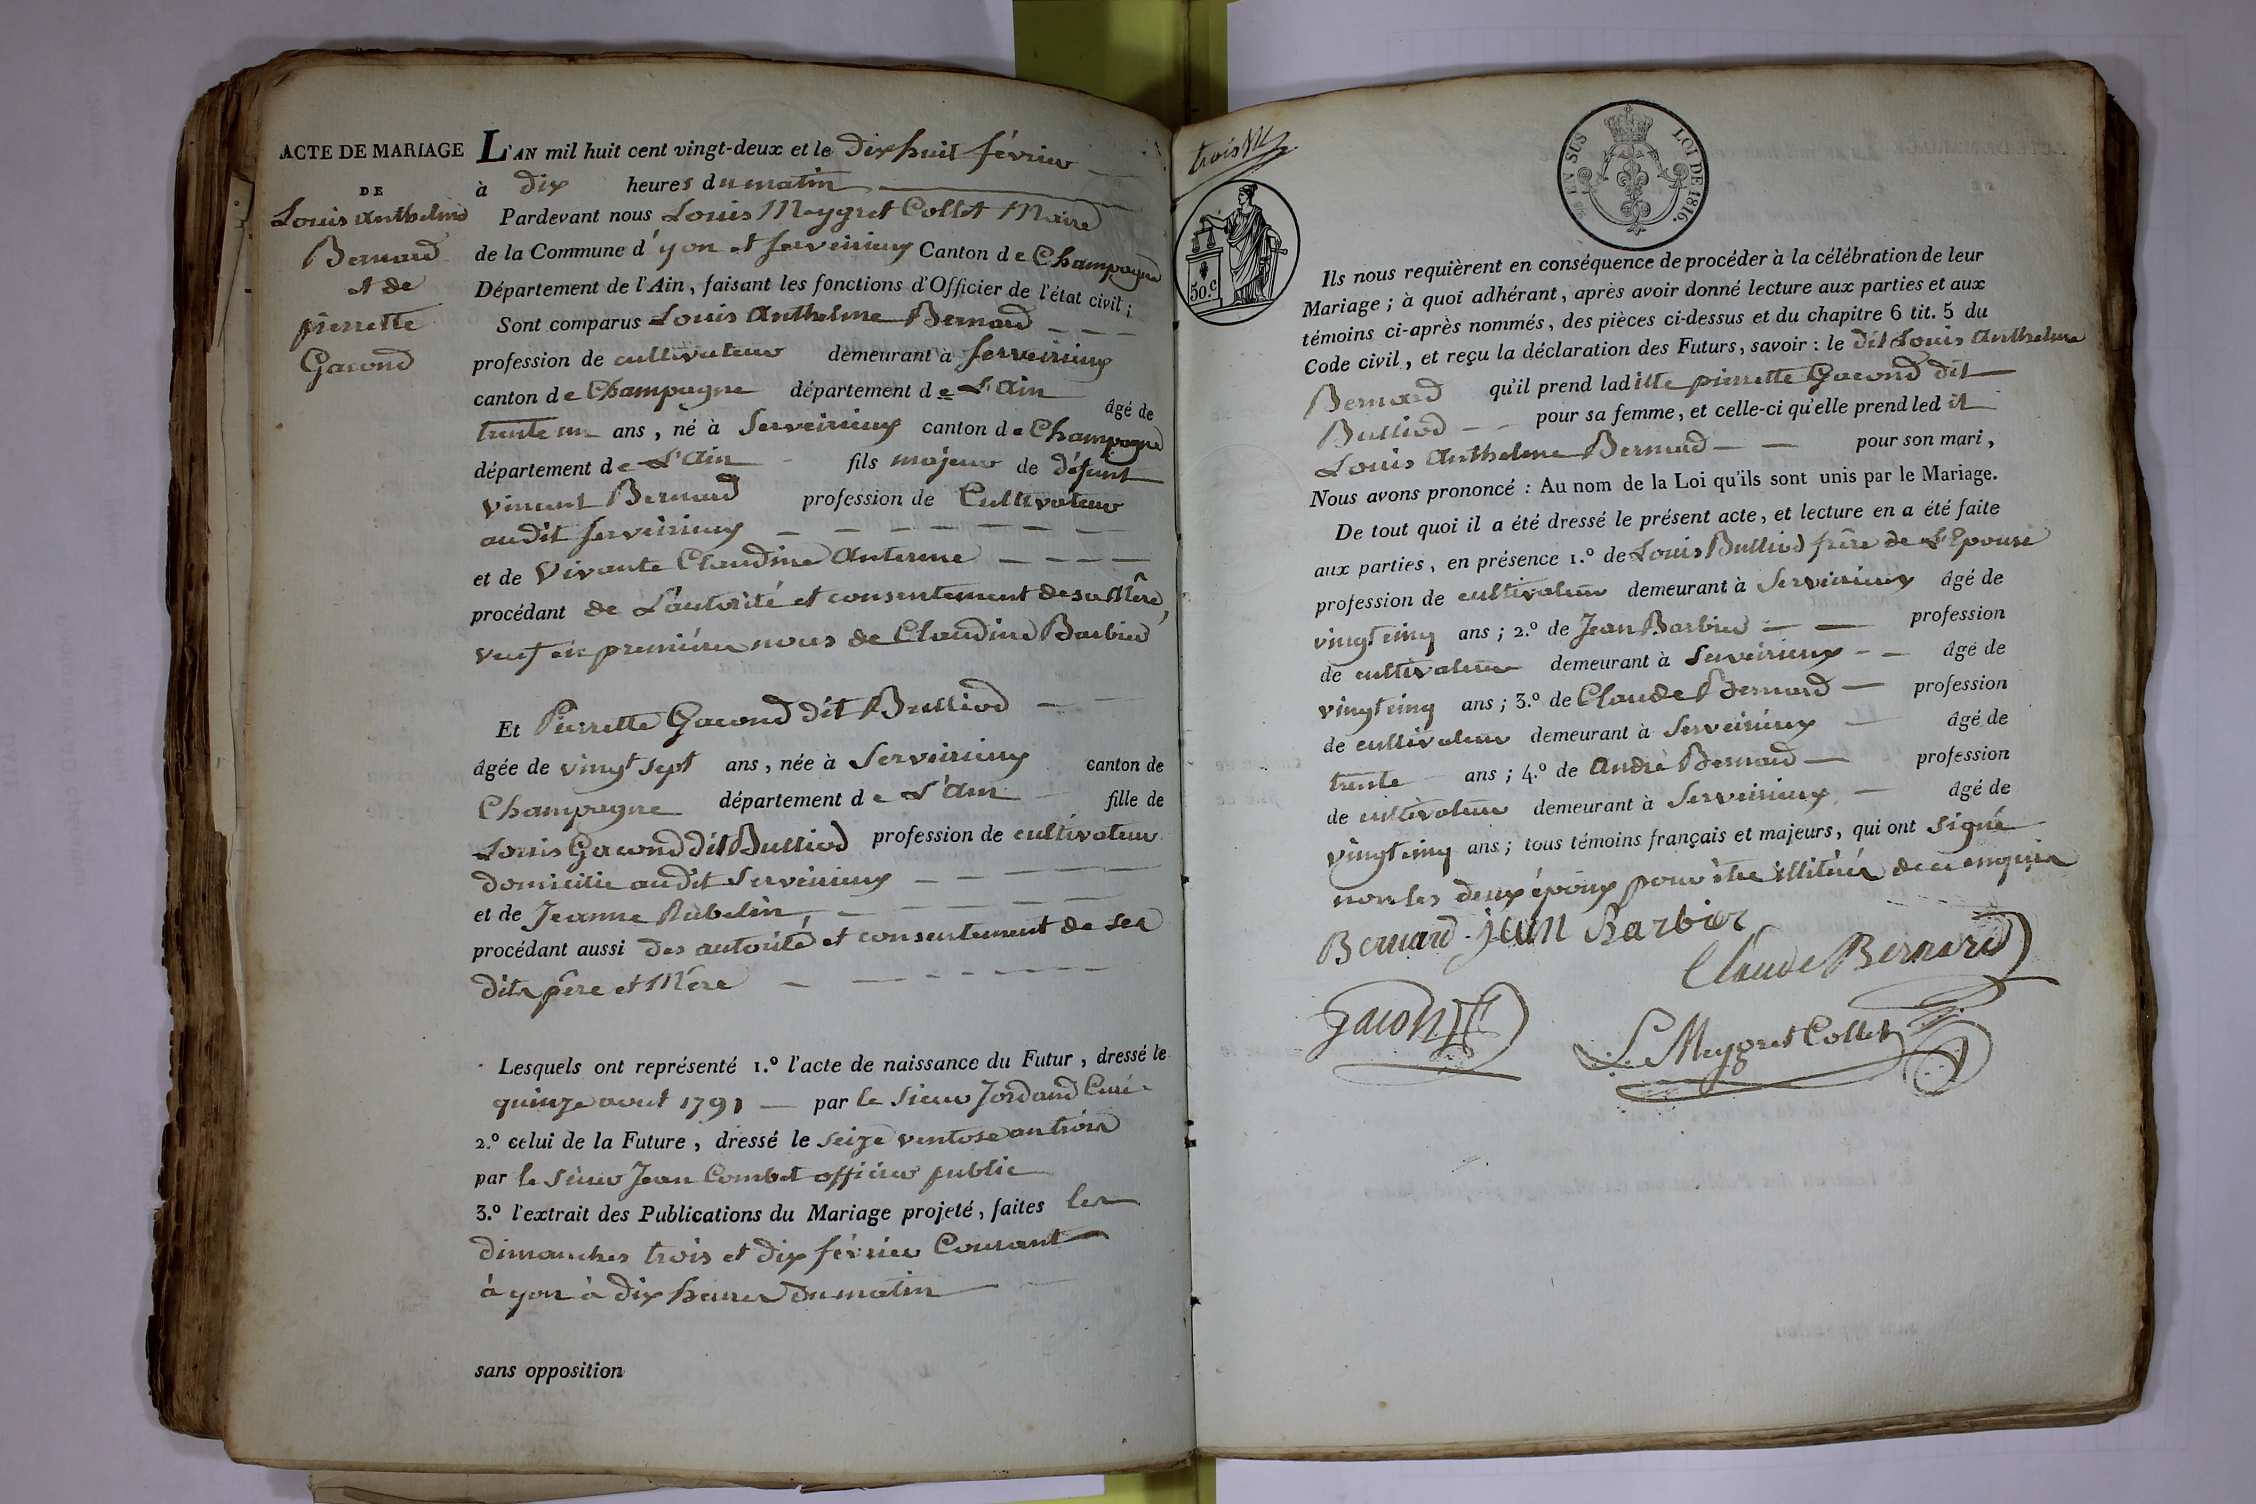 ACTE DE MARIAGE
DE
Louis Anthelme
Bernard
et de
pierrette
Gacond
L'AN mil huit cent vingt-deux et le dix huit février
à dix heures du matin
Pardevant nous Louis Meygret Collet Maire
de la Commune d'yon et serveirieux Canton de Champagne
Département de l'Ain, faisant les fonctions d'Officier de l'état civil;
Sont comparus Louis Anthelme Bernard
profession de cultivateur demeurant à serveirieux
canton de Champagne département de L'Ain âgé de
trente un ans, né à Serveirieux canton de Champagne
département de L'Ain fils majeur de défunt
vincent Bernard profession de Cultivateur
audit serveirieux
et de Vivante Claudine Anterme
procédant de L'autorité et consentement de sa Mère,
veuf en premières noces de Claudine Barbier
Et Pierrette Gacond dit Bulliod
âgée de vingt sept ans, née à Serveirieux canton de
Champagne département de L'Ain fille de
Louis Gacond dit Bulliod profession de cultivateur
domicilié audit Serveirieux
et de Jeanne Rubelin,
procédant aussi des autorité et consentement de ses
dits père et Mère
Lesquels ont représenté 1.º l'acte de naissance du Futur, dressé le
quinze aout 1791 par le sieur Jordand Curé
2.º celui de la Future, dressé le seize ventose an trois
par le sieur Jean Combet officier public
3.º l'extrait des Publications du Mariage projeté, faites les
dimanches trois et dix février Courant
à yon à dix heures du matin
sans opposition
trois
EN SUS
LOI DE 1816.
50.c
Ils nous requièrent en conséquence de procéder à la célébration de leur
Mariage; à quoi adhérant, après avoir donné lecture aux parties et aux
témoins ci-après nommés, des pièces ci-dessus et du chapitre 6 tit. 5 du
Code civil, et reçu la déclaration des Futurs, savoir: le dit Louis Anthelme
Bernard qu'il prend laditte pierrette Gacond dit
Bulliod pour sa femme, et celle-ci qu'elle prend ledit
Louis Anthelme Bernard pour son mari,
Nous avons prononcé: Au nom de la Loi qu'ils sont unis par le Mariage.
De tout quoi il a été dressé le présent acte, et lecture en a été faite
aux parties, en présence 1.º de Louis Bulliod frère de L'Epouse
profession de cultivateur demeurant à Serveirieux âgé de
vingt cinq ans; 2.º de Jean Barbier profession
de cultivateur demeurant à Serveirieux âgé de
vingt cinq ans; 3.º de Claude Bernard profession
de cultivateur demeurant à Serveirieux âgé de
trente ans; 4.º de André Bernard profession
de cultivateur demeurant à Serveirieux âgé de
vingt cinq ans; tous témoins français et majeurs, qui ont signé
non les deux époux pour être illitérés de ce enquis
Bernard jean Barbier
Claude Bernard
Gacon
L Meygret Collet